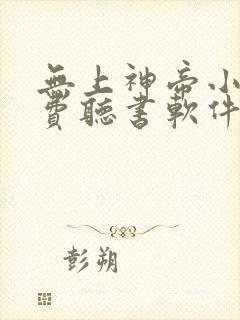 無上神帝小
費聽書軟件
彭朔